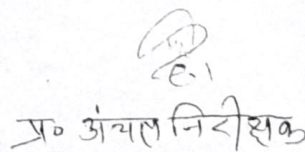 प्र० अंचल निरीक्षक